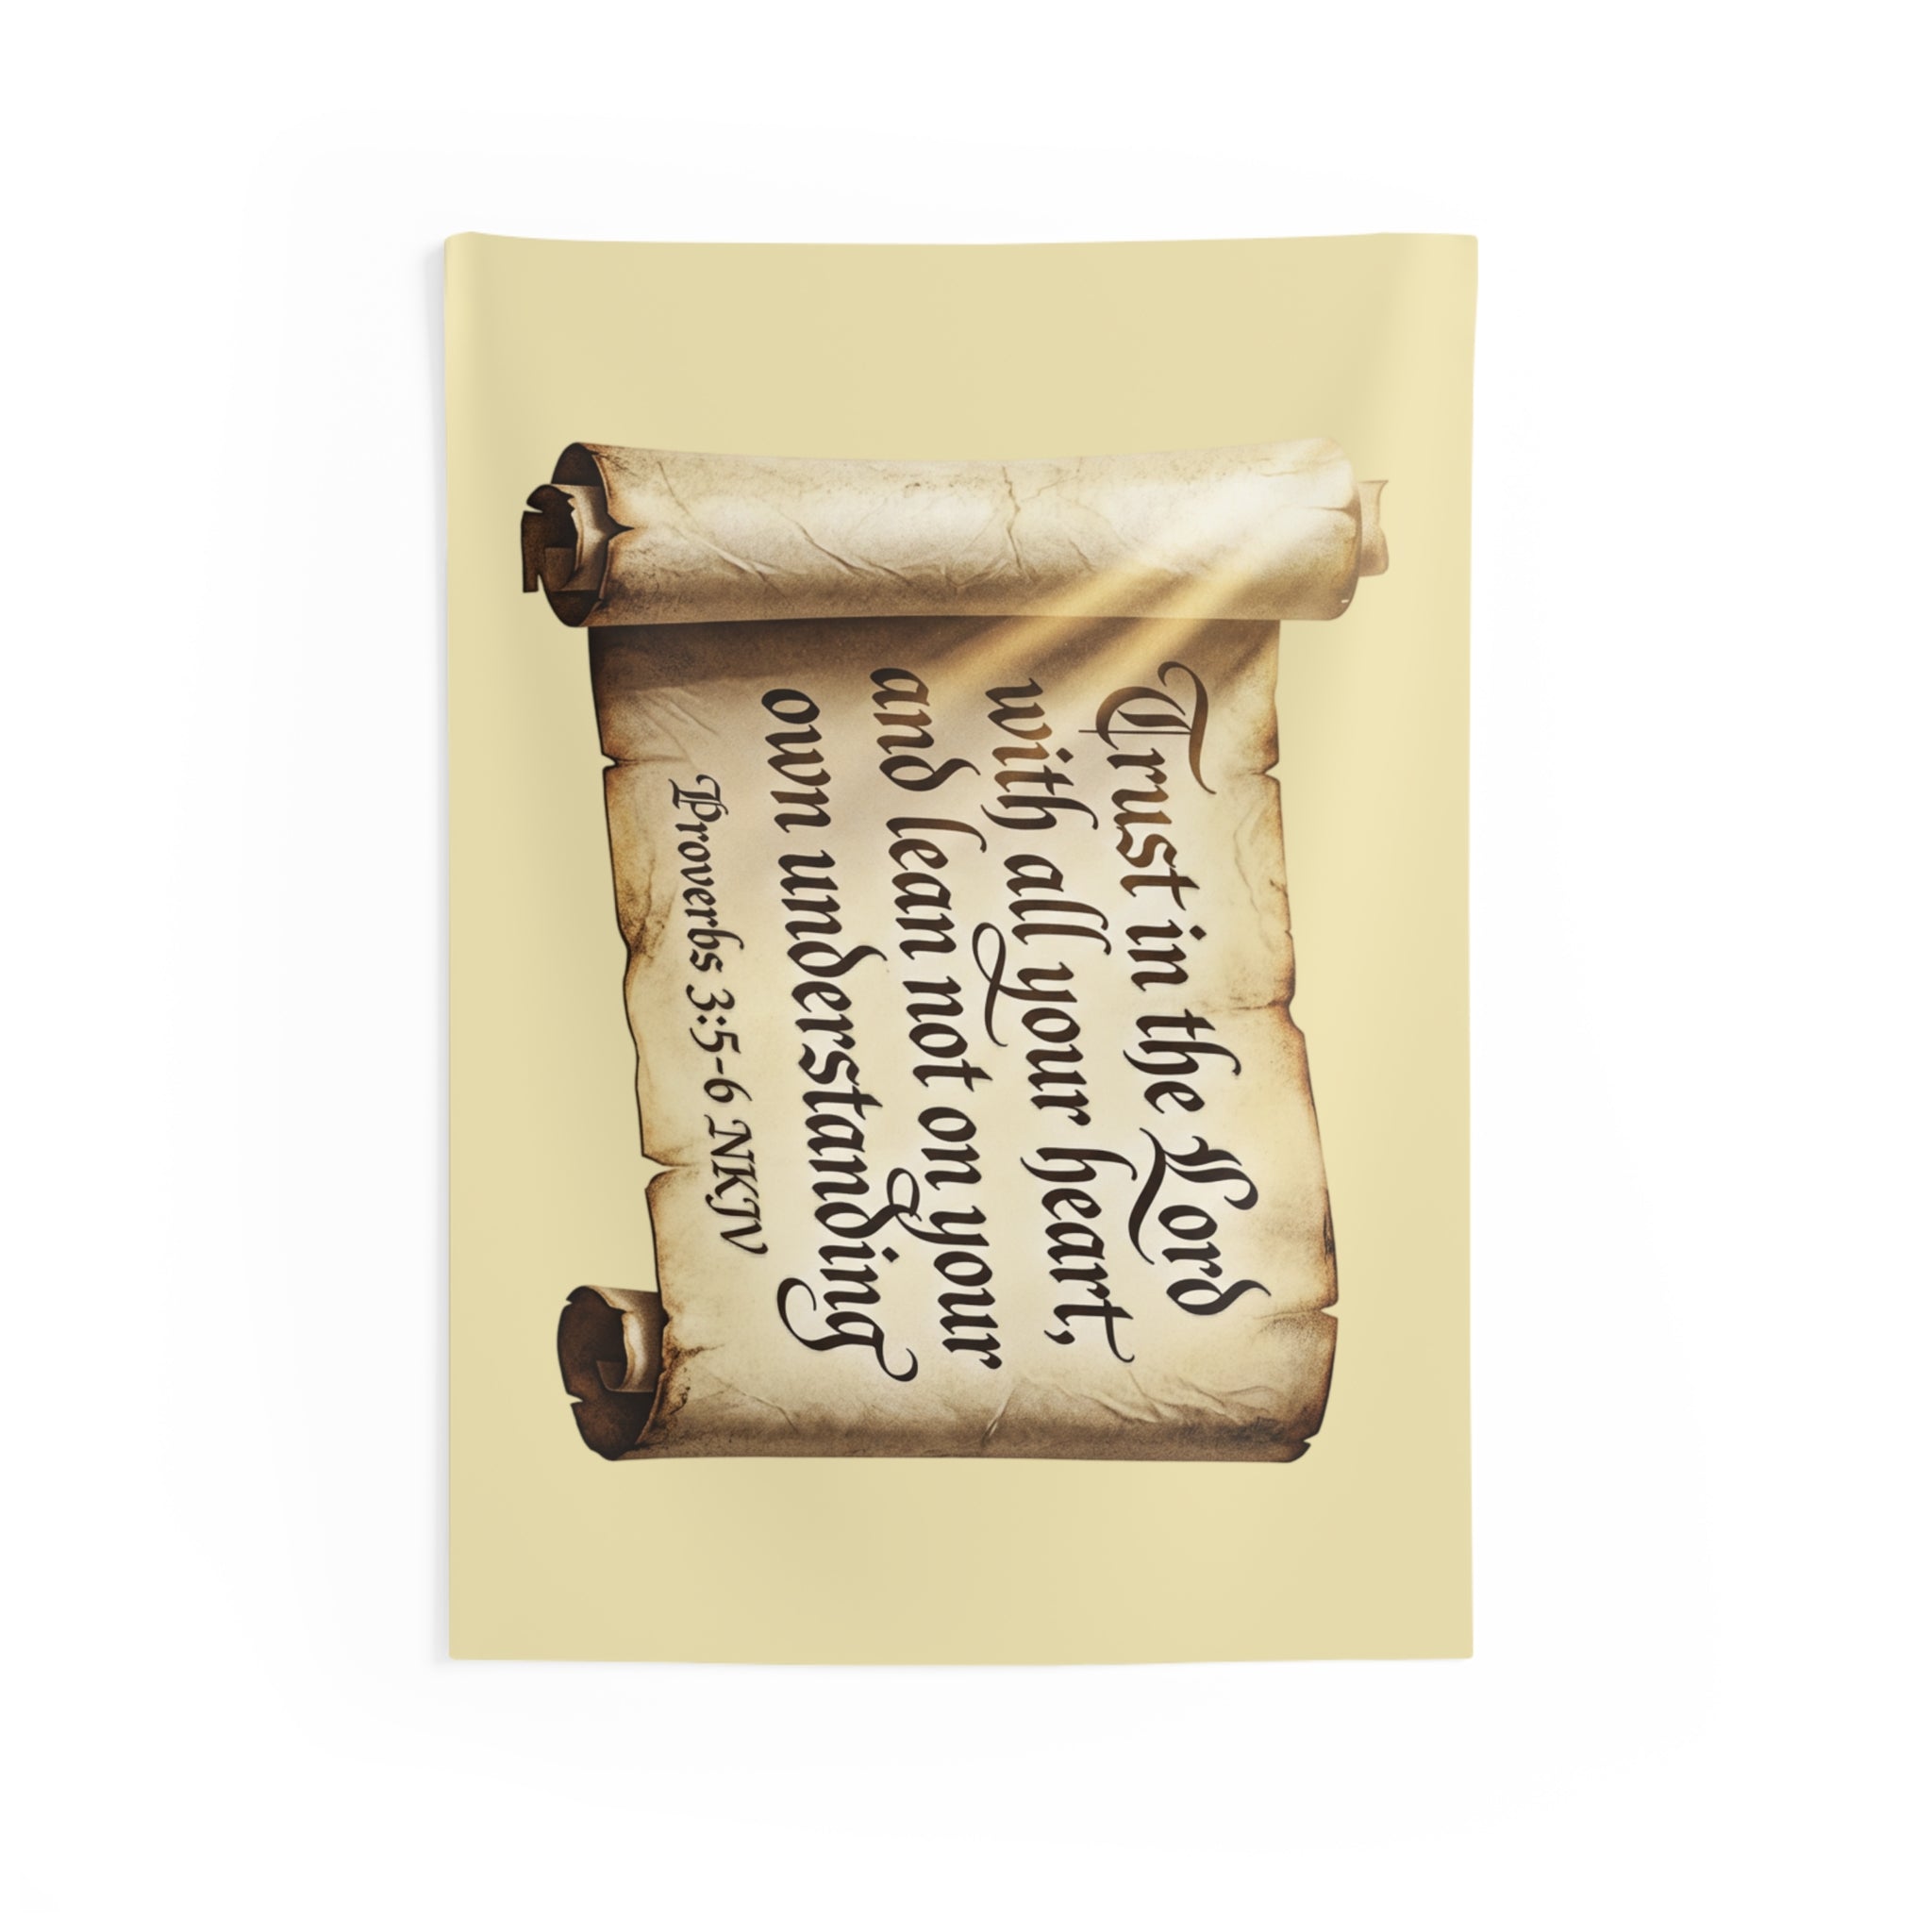 Trust in the Lord
with all your heart,
and lean not on your
own understanding
Proverbs 3:5-6 NKJV